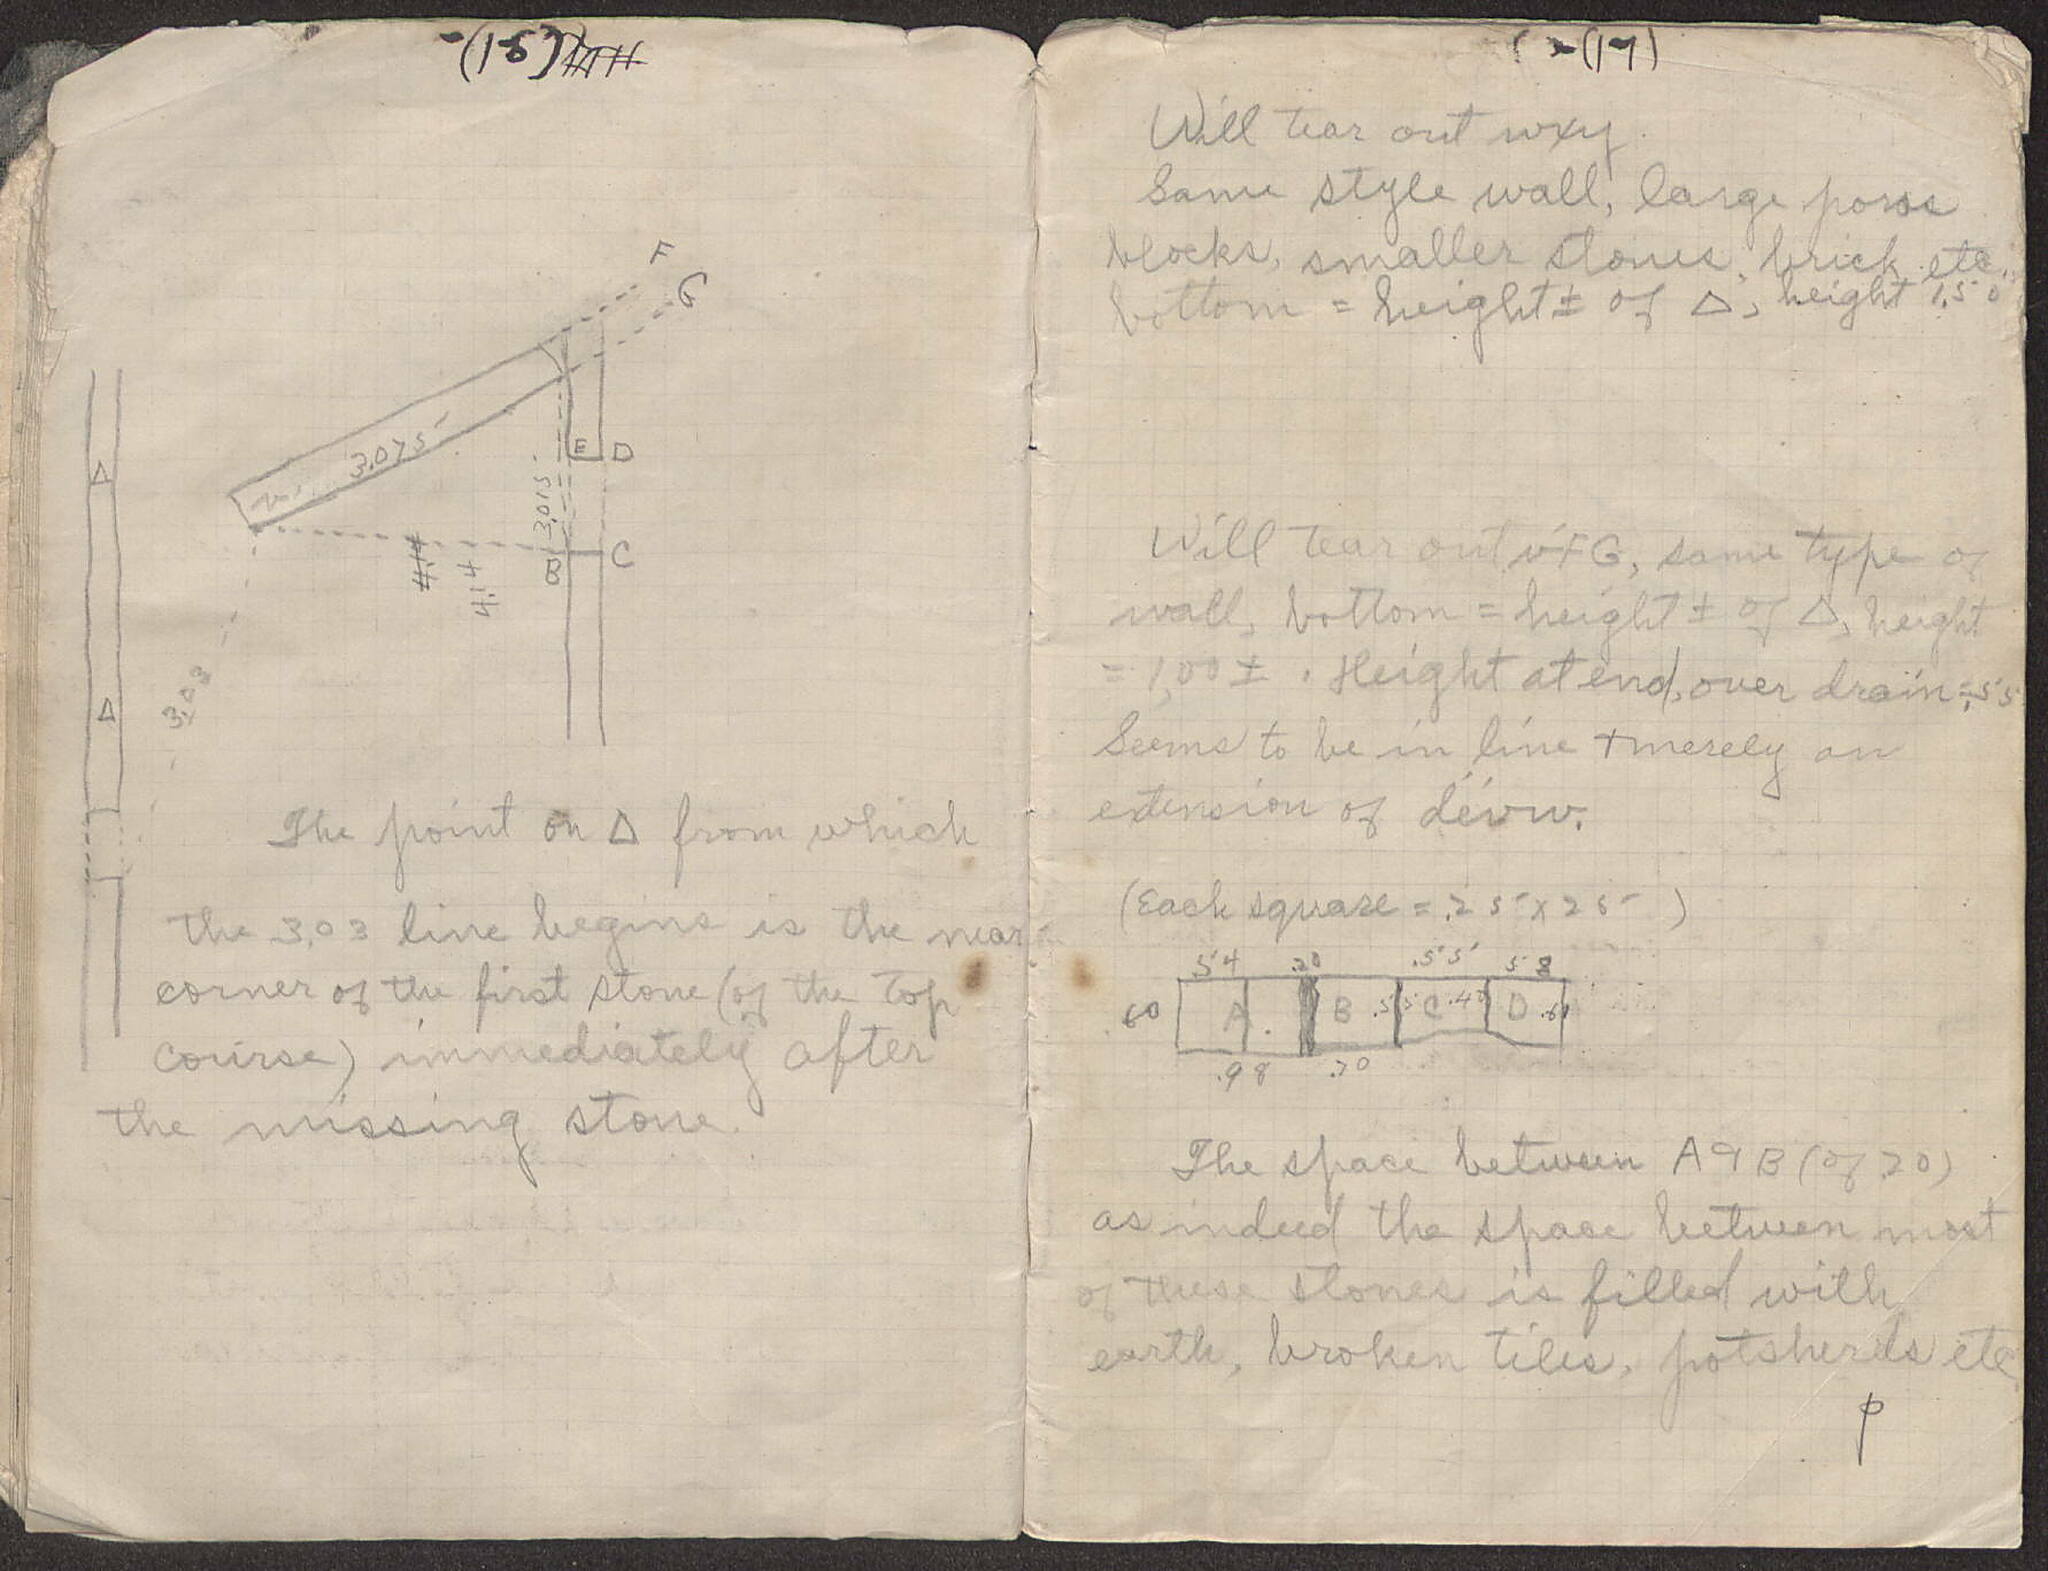 -(15)
F
G
3.075
E D
3.015
B C
4.14
Δ
Δ
3.03
The point on Δ from which
the 3.03 line begins is the near
corner of the first stone (of the top
course) immediately after
the missing stone.
(17)
Will tear out wxy.
Same style wall, large poros
blocks, smaller stones, brick etc.
bottom = height ± of Δ, height 1.50
Will tear out v'FG, same type of
wall, bottom = height ± of Δ, height
= 1,00 ± . Height at end, over drain = .55
Seems to be in line + merely an
extension of
(Each square = .25 x 25)
.54 .20 .55 58
.60 A B .55 C D
.98 .70
The space between A & B (of .20)
as indeed the space between most
of these stones is filled with
earth, broken tiles, potsherds etc